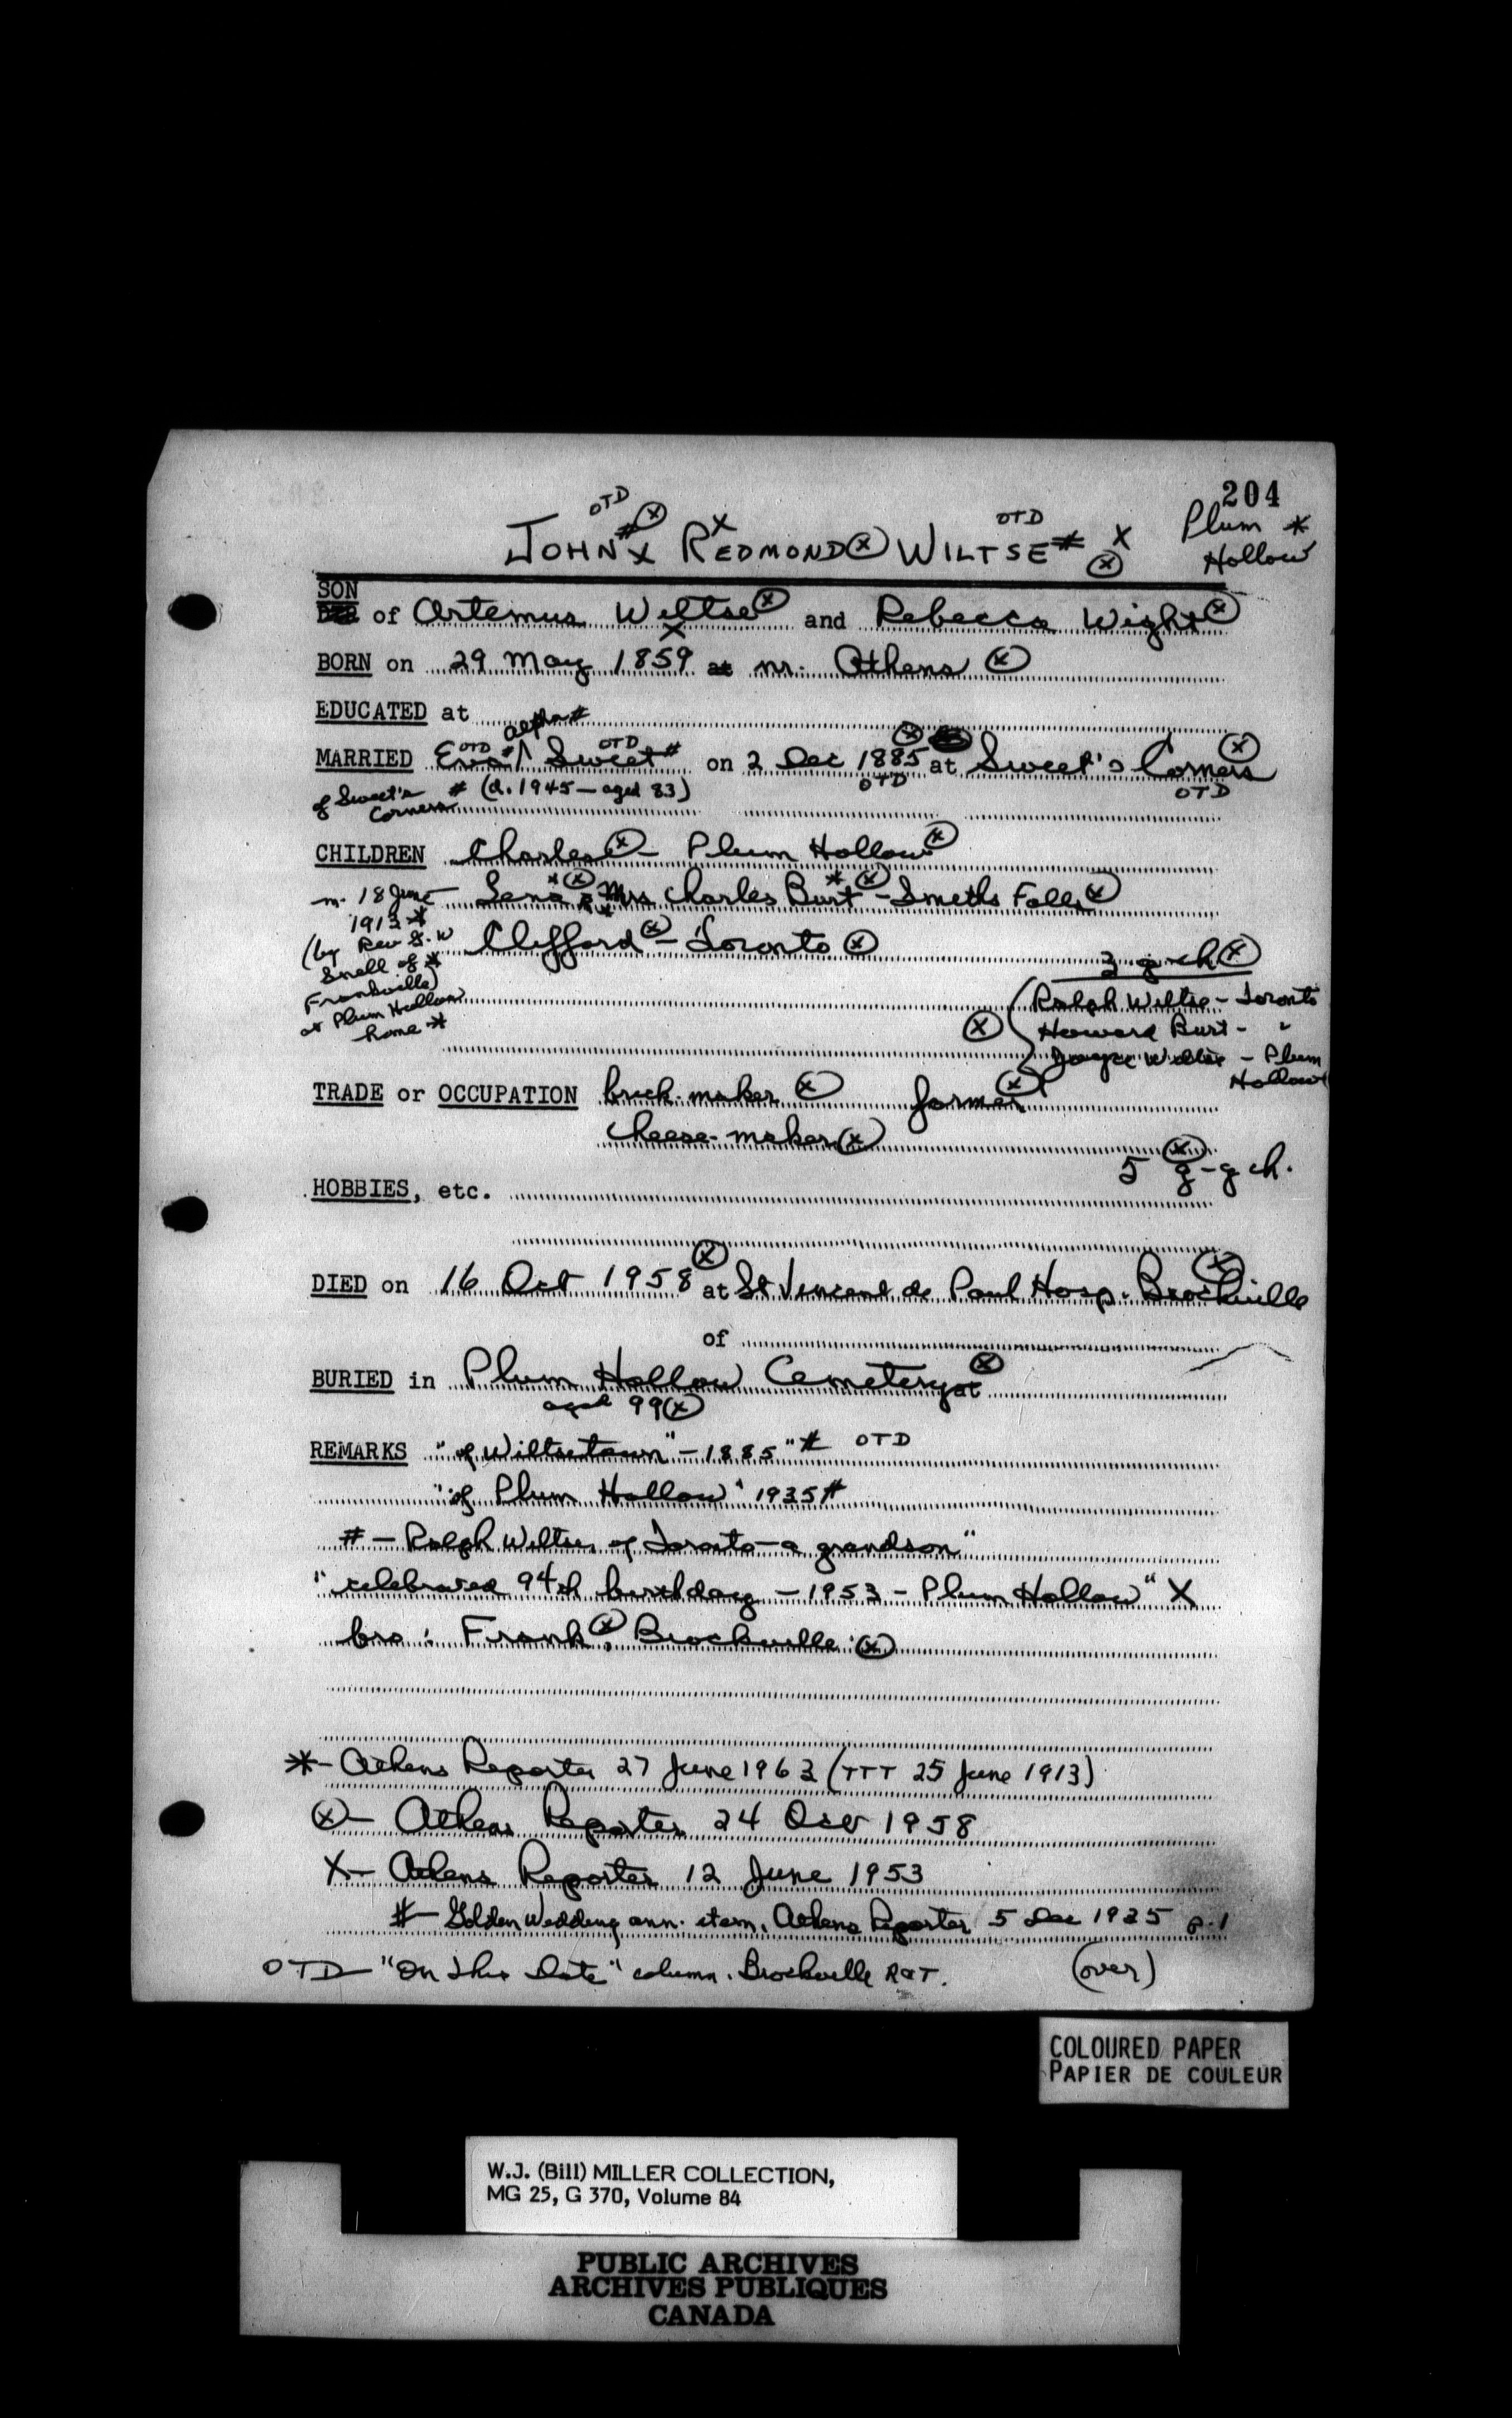 204
OTD # ⓧ X OTD
JOHN X REDMOND ⓧ WILTSE # X ⓧ
Plum *
Hollow
SON
of Artemus Wiltse ⓧ and Rebecca Wight ⓧ
X
BORN on 29 May 1859 at nr. Athens ⓧ
EDUCATED at
Alpha #
OTD # OTD # ⓧ ⓧ
MARRIED Eva / Sweet on 2 Dec 1885 at Sweet's Corners
OTD OTD
of Sweet's # (d. 1945 – aged 83)
Corners
CHILDREN Charles ⓧ – Plum Hollow ⓧ
m. 18 June Lena * ⓧ * Mrs Charles Burt * ⓧ – Smiths Falls ⓧ
1913 *
(by Rev G. W Clifford ⓧ – Toronto ⓧ
3 g-ch ⓧ
Snell of *
Frankville)
at Plum Hollow
home *
ⓧ { Ralph Wiltse – Toronto
Howard Burt – "
Wiltse – Plum
Hollow
TRADE or OCCUPATION brick-maker ⓧ farmer ⓧ
cheese-maker ⓧ
5 g-g ch. ⓧ
HOBBIES, etc.
DIED on 16 Oct 1958 ⓧ at St Vincent de Paul Hosp. Brockville ⓧ
of
BURIED in Plum Hollow Cemetery at ⓧ
aged 99 ⓧ
REMARKS "of Wiltsetown" – 1885 " # OTD
"of Plum Hollow" 1935 #
# – Ralph Wiltse, of Toronto – a grandson"
"celebrated 94th birthday – 1953 – Plum Hollow" X
bro: Frank ⓧ, Brockville ⓧ
* – Athens Reporter 27 June 1963 (TTT 25 June 1913)
ⓧ – Athens Reporter 24 Oct 1958
X – Athens Reporter 12 June 1953
# – Golden Wedding ann. item, Athens Reporter 5 Dec 1935 p.1
OTD – "On This Date" column. Brockville R&T.
(over)
COLOURED PAPER
PAPIER DE COULEUR
W.J. (Bill) MILLER COLLECTION,
MG 25, G 370, Volume 84
PUBLIC ARCHIVES
ARCHIVES PUBLIQUES
CANADA